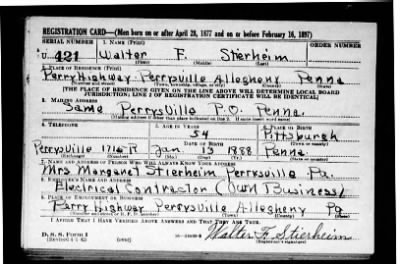 REGISTRATION CARD—(Men born on or after April 28, 1877 and on or before February 16, 1897)
SERIAL NUMBER 1. NAME (Print) ORDER NUMBER
U 421 Walter F. Stierheim
(First) (Middle) (Last)
2. PLACE OF RESIDENCE (Print)
Perry Highway Perrysville Allegheny Penna
[THE PLACE OF RESIDENCE GIVEN ON THE LINE ABOVE WILL DETERMINE LOCAL BOARD
JURISDICTION; LINE 2 OF REGISTRATION CERTIFICATE WILL BE IDENTICAL]
3. MAILING ADDRESS
Same Perrysville P.O. Penna.
[Mailing address if other than place indicated on line 2. If same insert word same]
4. TELEPHONE 5. AGE IN YEARS 6. PLACE OF BIRTH
54 Pittsburgh
DATE OF BIRTH (Town or county)
Perrysville 1716 R Jan. 13 1888 Penna.
(Exchange) (Number) (Mo.) (Day) (Yr.) (State or country)
7. NAME AND ADDRESS OF PERSON WHO WILL ALWAYS KNOW YOUR ADDRESS
Mrs Margaret Stierheim Perrysville Pa.
8. EMPLOYER'S NAME AND ADDRESS
Electrical Contractor (Own Business)
9. PLACE OF EMPLOYMENT OR BUSINESS
Perry Highway Perrysville Allegheny Pa
(Number and street or R. F. D. number) (Town) (County) (State)
I AFFIRM THAT I HAVE VERIFIED ABOVE ANSWERS AND THAT THEY ARE TRUE.
D. S. S. Form 1
(over) Walter F. Stierheim
(Registrant's signature)